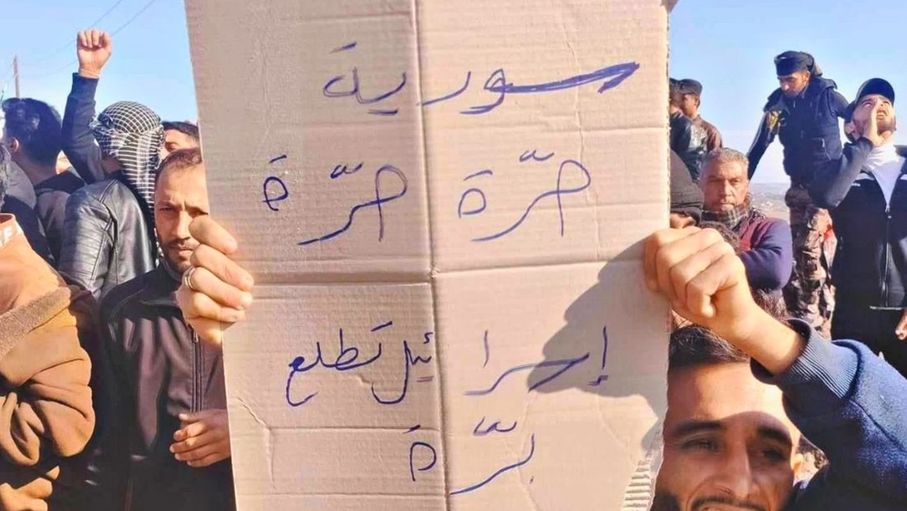 سورية
حرّة حرّة
إسرائيل تطلع
برّة